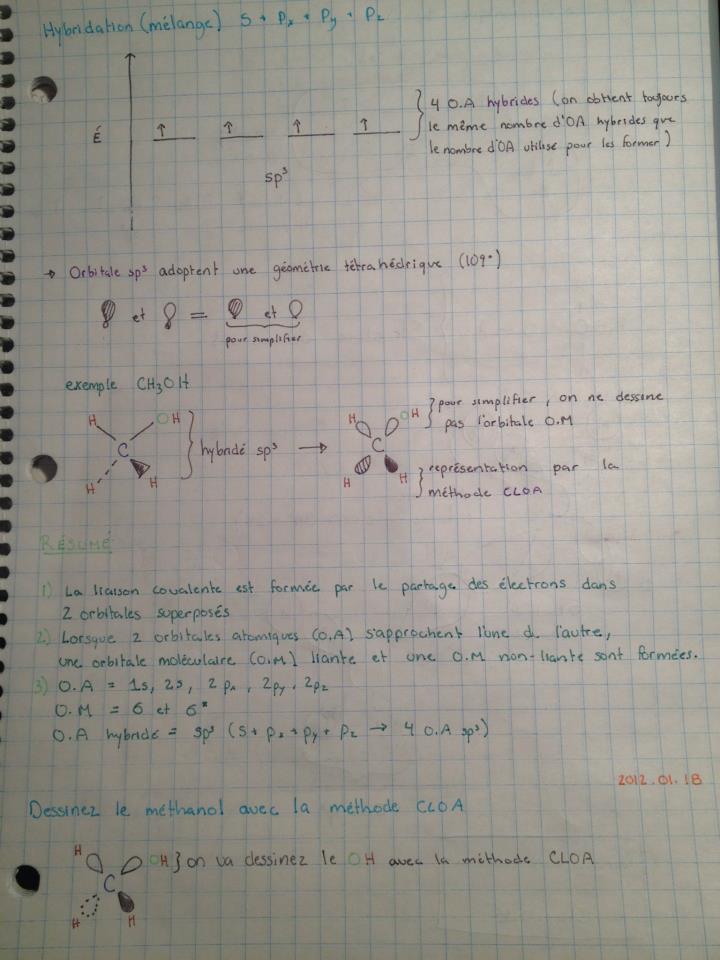 Hybridation (mélange) S + Px + Py + Pz
4 O.A hybrides (on obtient toujours
le même nombre d'OA hybrides que
le nombre d'OA utilisé pour les former)
É
sp³
→ Orbitale sp³ adoptent une géométrie tétrahédrique (109°)
et = et
pour simplifier
exemple CH₃OH
H OH
C
H H
hybridé sp³ →
H OH
C
H H
pour simplifier, on ne dessine
pas l'orbitale O.M
représentation par la
méthode CLOA
RÉSUMÉ
1) La liaison covalente est formée par le partage des électrons dans
2 orbitales superposés
2) Lorsque 2 orbitales atomiques (O.A) s'approchent l'une d. l'autre,
une orbitale moléculaire (O.M) liante et une O.M non-liante sont formées.
3) O.A = 1s, 2s, 2px, 2py, 2pz
O.M = σ et σ*
O.A hybride = sp³ (s + px + py + pz → 4 O.A sp³)
2012.01.18
Dessinez le méthanol avec la méthode CLOA
H OH } on va dessinez le OH avec la méthode CLOA
C
H H